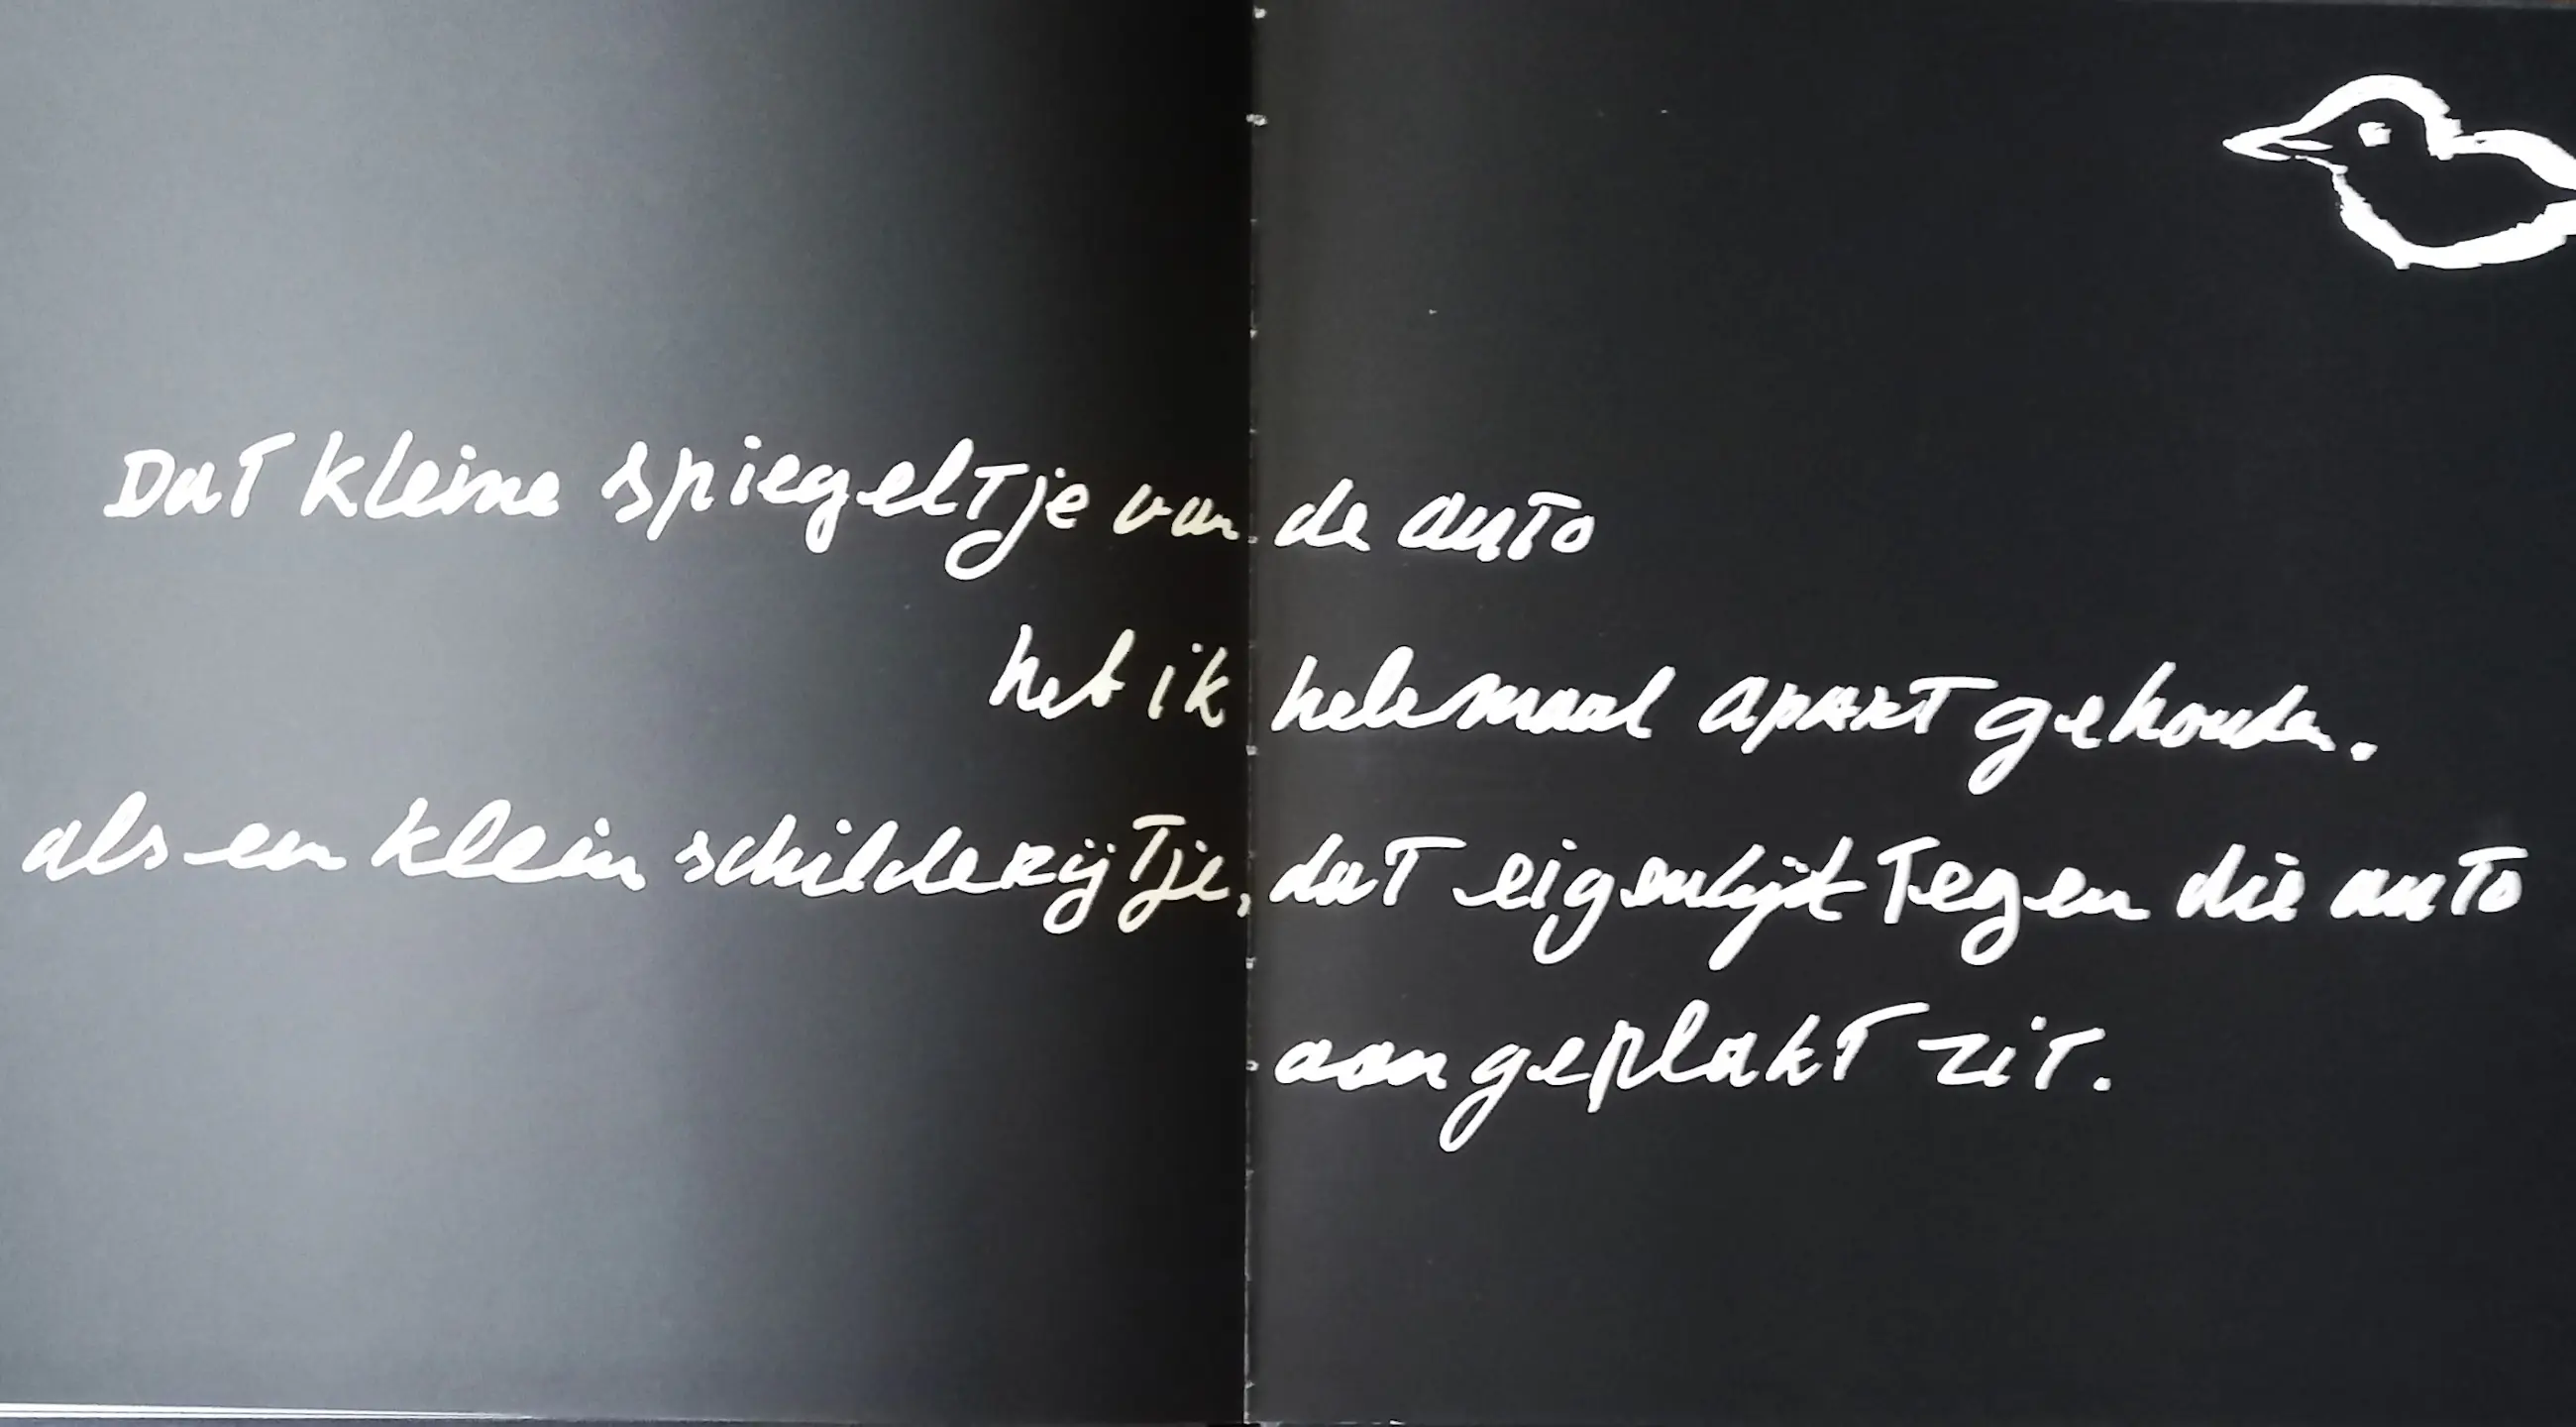 Dat kleine spiegeltje van de auto
heb ik helemaal apart gehouden.
als een klein schilderijtje, dat eigenlijk tegen die auto
aangeplakt zit.